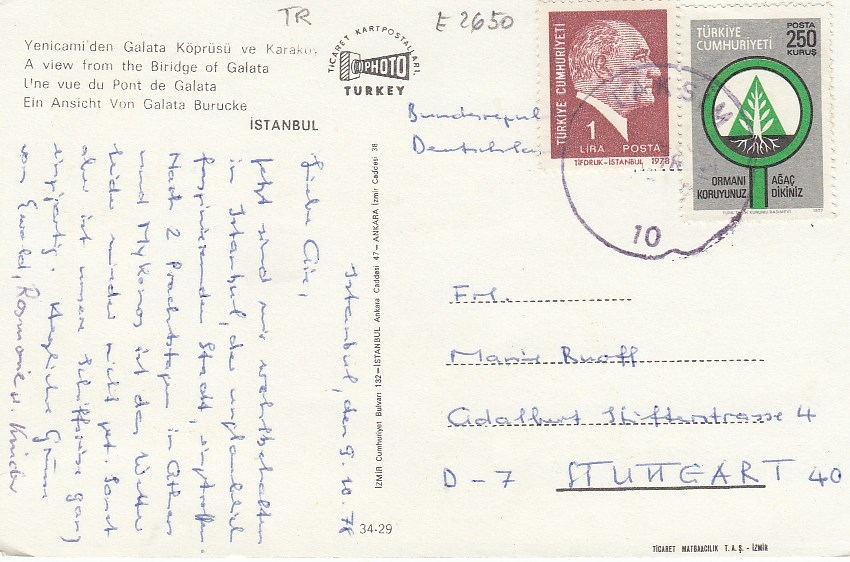 TR
E 2650
Yenicami'den Galata Köprüsü ve Karaköy
A view from the Biridge of Galata
Une vue du Pont de Galata
Ein Ansicht Von Galata Burucke
İSTANBUL
TİCARET KARTPOSTALLARI,
PHOTO
TURKEY
TÜRKİYE CUMHURİYETİ
1
LİRA POSTA
TİFDRUK-İSTANBUL 1978
TÜRKİYE
CUMHURİYETİ
POSTA
250
KURUŞ
ORMANI
KORUYUNUZ
AĞAÇ
DİKİNİZ
1977
10
Istanbul, den 9.10.78
Liebe
Jetzt sind wir wohlbehalten
in Istanbul, der unglaublich
faszinierenden Stadt, eingetroffen.
Nach 2 Prachtstagen in Athen
und Mykonos ist das Wetter
leider wieder nicht gut. Sonst
aber ist unsere Schiffsreise ganz
einzigartig. Herzliche Grüsse
von Ewald, Rosmarie u. Kinder
İZMİR Cumhuriyet Bulvarı 132—İSTANBUL Ankara Caddesi 47— ANKARA İzmir Caddesi 38
34-29
Bundesrepubl
Deutschla
Frl.
Marie Ruoff
Adalbert Stifterstrasse 4
D - 7 STUTTGART 40
TİCARET MATBAACILIK T. A. Ş. - İZMİR